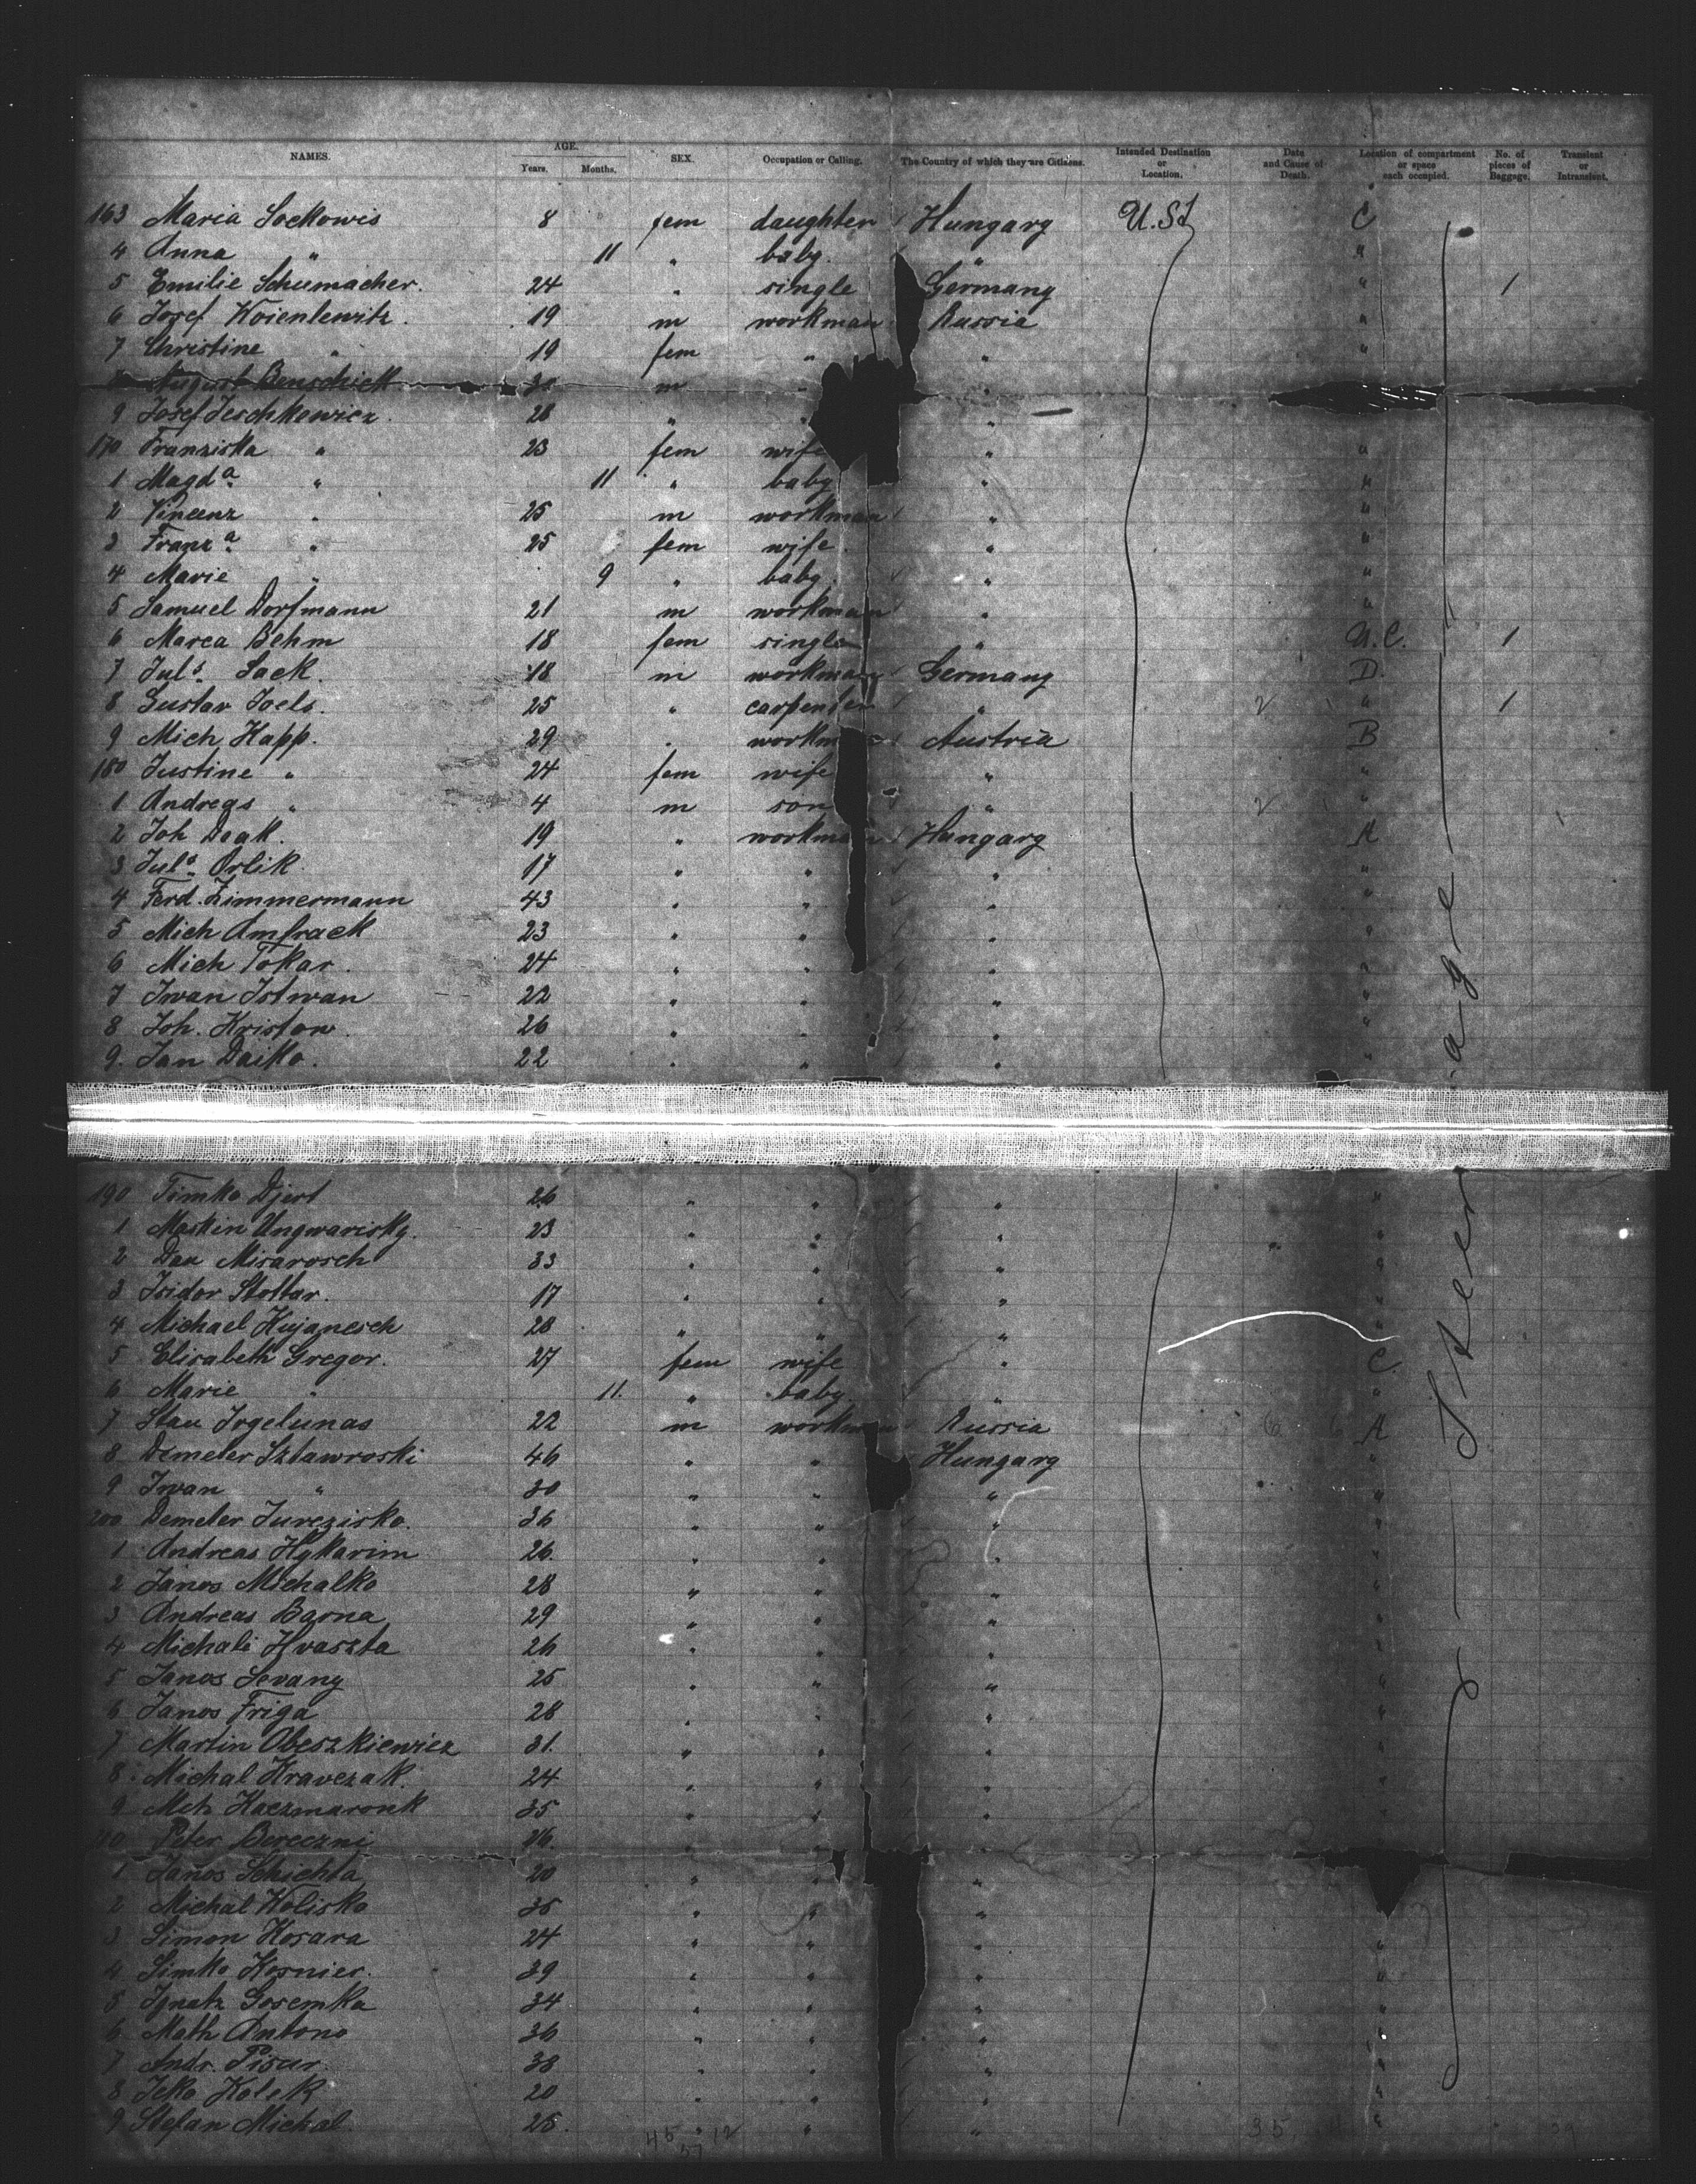 NAMES. AGE. Years. Months. SEX. Occupation or Calling. The Country of which they are Citizens. Intended Destination or Location. Date and Cause of Death. Location of compartment or space each occupied. No. of pieces of Baggage. Transient or Intransient.
163 Maria Sockowis 8 fem daughter Hungary U.St C
4 Anna " 11 " baby. " "
5 Emilie Schumacher. 24 " single Germany " 1
6 Josef Woienlewitz. 19 m workman Russia "
7 Christine " 19 fem " " "
August Benschick 30 m " "
9 Josef Jeschkowicz. 28 " " "
170 Franziska " 23 fem wife " "
1 Magda " 11 " baby " "
2 Vincenz " 25 m workman " "
3 Franza " 25 fem wife " "
4 Marie " 9 " baby. " "
5 Samuel Dorfmann 21 m workman " "
6 Marca Behm 18 fem single " U.C. 1
7 Juls. Sack. 18 m workman Germany D.
8 Gustav Joels. 25 " carpenter " " 1
9 Mich Happ. 29 " workm Austria B
180 Justine " 24 fem wife " "
1 Andreas " 4 m son " "
2 Joh Daak. 19 " workman Hungary A
3 Juls. Orlik 17 " " " "
4 Ferd. Zimmermann 43 " " " "
5 Mich Amfrack 23 " " " "
6 Mich Tokar. 24 " " " "
7 Iwan Istwan 22 " " " "
8 Joh. Kristow. 26 " " " "
9. Jan Daiko. 22 " " " "
190 Timko Djert 26 " " " "
1 Maskin Ungwarisky. 23 " " " "
2 Dan Misarosch 33 " " " "
3 Isidor Stottar. 17 " " " "
4 Michael Hujanesch 28 " " " "
5 Elisabeth Gregor. 27 fem wife " C.
6 Marie " 11. " baby " "
7 Stau Jogelunas 22 m workman Russia A
8 Demeter Sztawroski 46 " " Hungary "
9 Iwan " 30 " " " "
200 Demeter Jurezisko. 36 " " " "
1 Andreas Hykarim 26. " " " "
2 Janos Michalko 28 " " " "
3 Andreas Barna 29 " " " "
4 Michali Hvaszta 26 " " " "
5 Janos Levany 25 " " " "
6 Janos Friga 28 " " " "
7 Martin Obeszkiewicz 31. " " " "
8 Michal Kravczak. 24 " " " "
9 Mch Kaczmaronk 35 " " " "
Peter Bereczni "
1 Janos Schichta 20 " " "
2 Michal Kolisko 35 " " "
3 Simon Kosara 24 " " " "
4 Simko Kosnier. 39 " " " "
5 Ignatz Gosemka 34 " " " "
6 Math Antono 36 " " " "
7 Andr. Pisar. 38 " " " "
8 Jeko Kolek 20 " " " "
9 Stefan Michal. 25. " " " "
Steerage
45 12
57
35